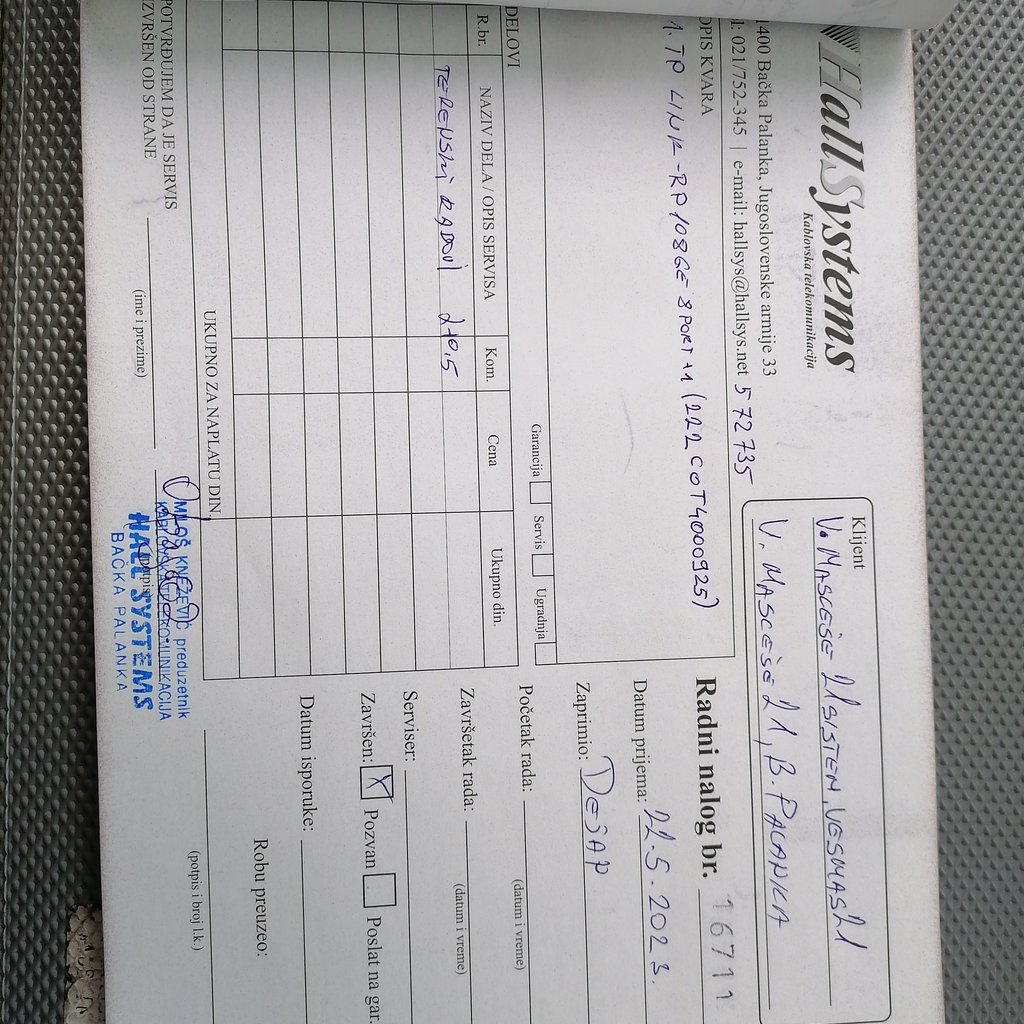 HallSystems
Kablovska telekomunikacija
400 Bačka Palanka, Jugoslovenske armije 33
l: 021/752-345 | e-mail: hallsys@hallsys.net 572735
Klijent
V. MASCEŠE 21 SISTEN, VESMAS21
V. MASCEŠE 21, B. PALANKA
OPIS KVARA
1. TP LINK - RP108GE 8PORT +1 (222C0T4000925)
Garancija Servis Ugradnja
Radni nalog br. 16711
Datum prijema: 22.5.2023.
Zaprimio: DEJAN
Početak rada:
(datum i vreme)
Završetak rada:
(datum i vreme)
Serviser:
Završen: X Pozvan Poslat na gar.
Datum isporuke:
Robu preuzeo:
(potpis i broj l.k.)
DELOVI
R.br. NAZIV DELA / OPIS SERVISA Kom. Cena Ukupno din.
TERENSKI RADOVI 2+0,5
UKUPNO ZA NAPLATU DIN.
POTVRĐUJEM DA JE SERVIS
IZVRŠEN OD STRANE
(ime i prezime)
(potpis)
MILOŠ KNEŽEVIĆ preduzetnik
KABLOVSKA TELEKOMUNIKACIJA
HALL SYSTEMS
BAČKA PALANKA